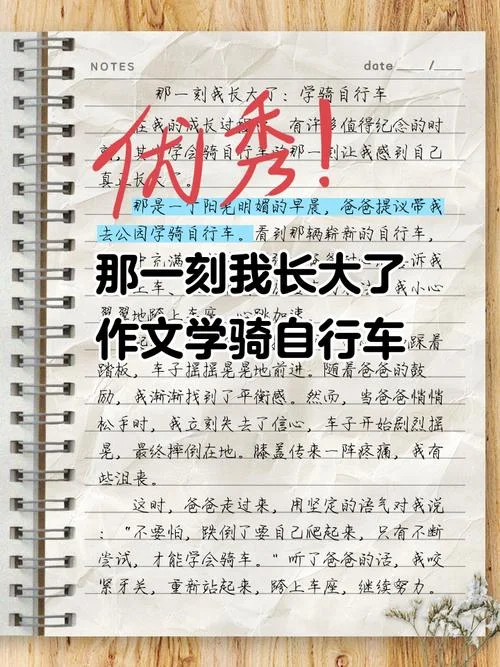 NOTES
date ____ / ____
那一刻我长大了：学骑自行车
优秀！
在我的成长过程 有许多值得纪念的时
刻，其 学会骑自行车 那一刻让我感到自己
真正长大了。
那是一个阳光明媚的早晨，爸爸提议带我
去公园学骑自行车。看到那辆崭新的自行车，
充满
诉我
上车 我小心
翼翼地跨上车座，心跳加速。
那一刻我长大了
作文学骑自行车
踩着
踏板，车子摇摇晃晃地前进。随着爸爸的鼓
励，我渐渐找到了平衡感。然而，当爸爸悄悄
松手时，我立刻失去了信心，车子开始剧烈摇
晃，最终摔倒在地。膝盖传来一阵疼痛，我有
些沮丧。
这时，爸爸走过来，用坚定的语气对我说
："不要怕，跌倒了要自己爬起来，只有不断
尝试，才能学会骑车。"听了爸爸的话，我咬
紧牙关，重新站起来，跨上车座，继续努力。